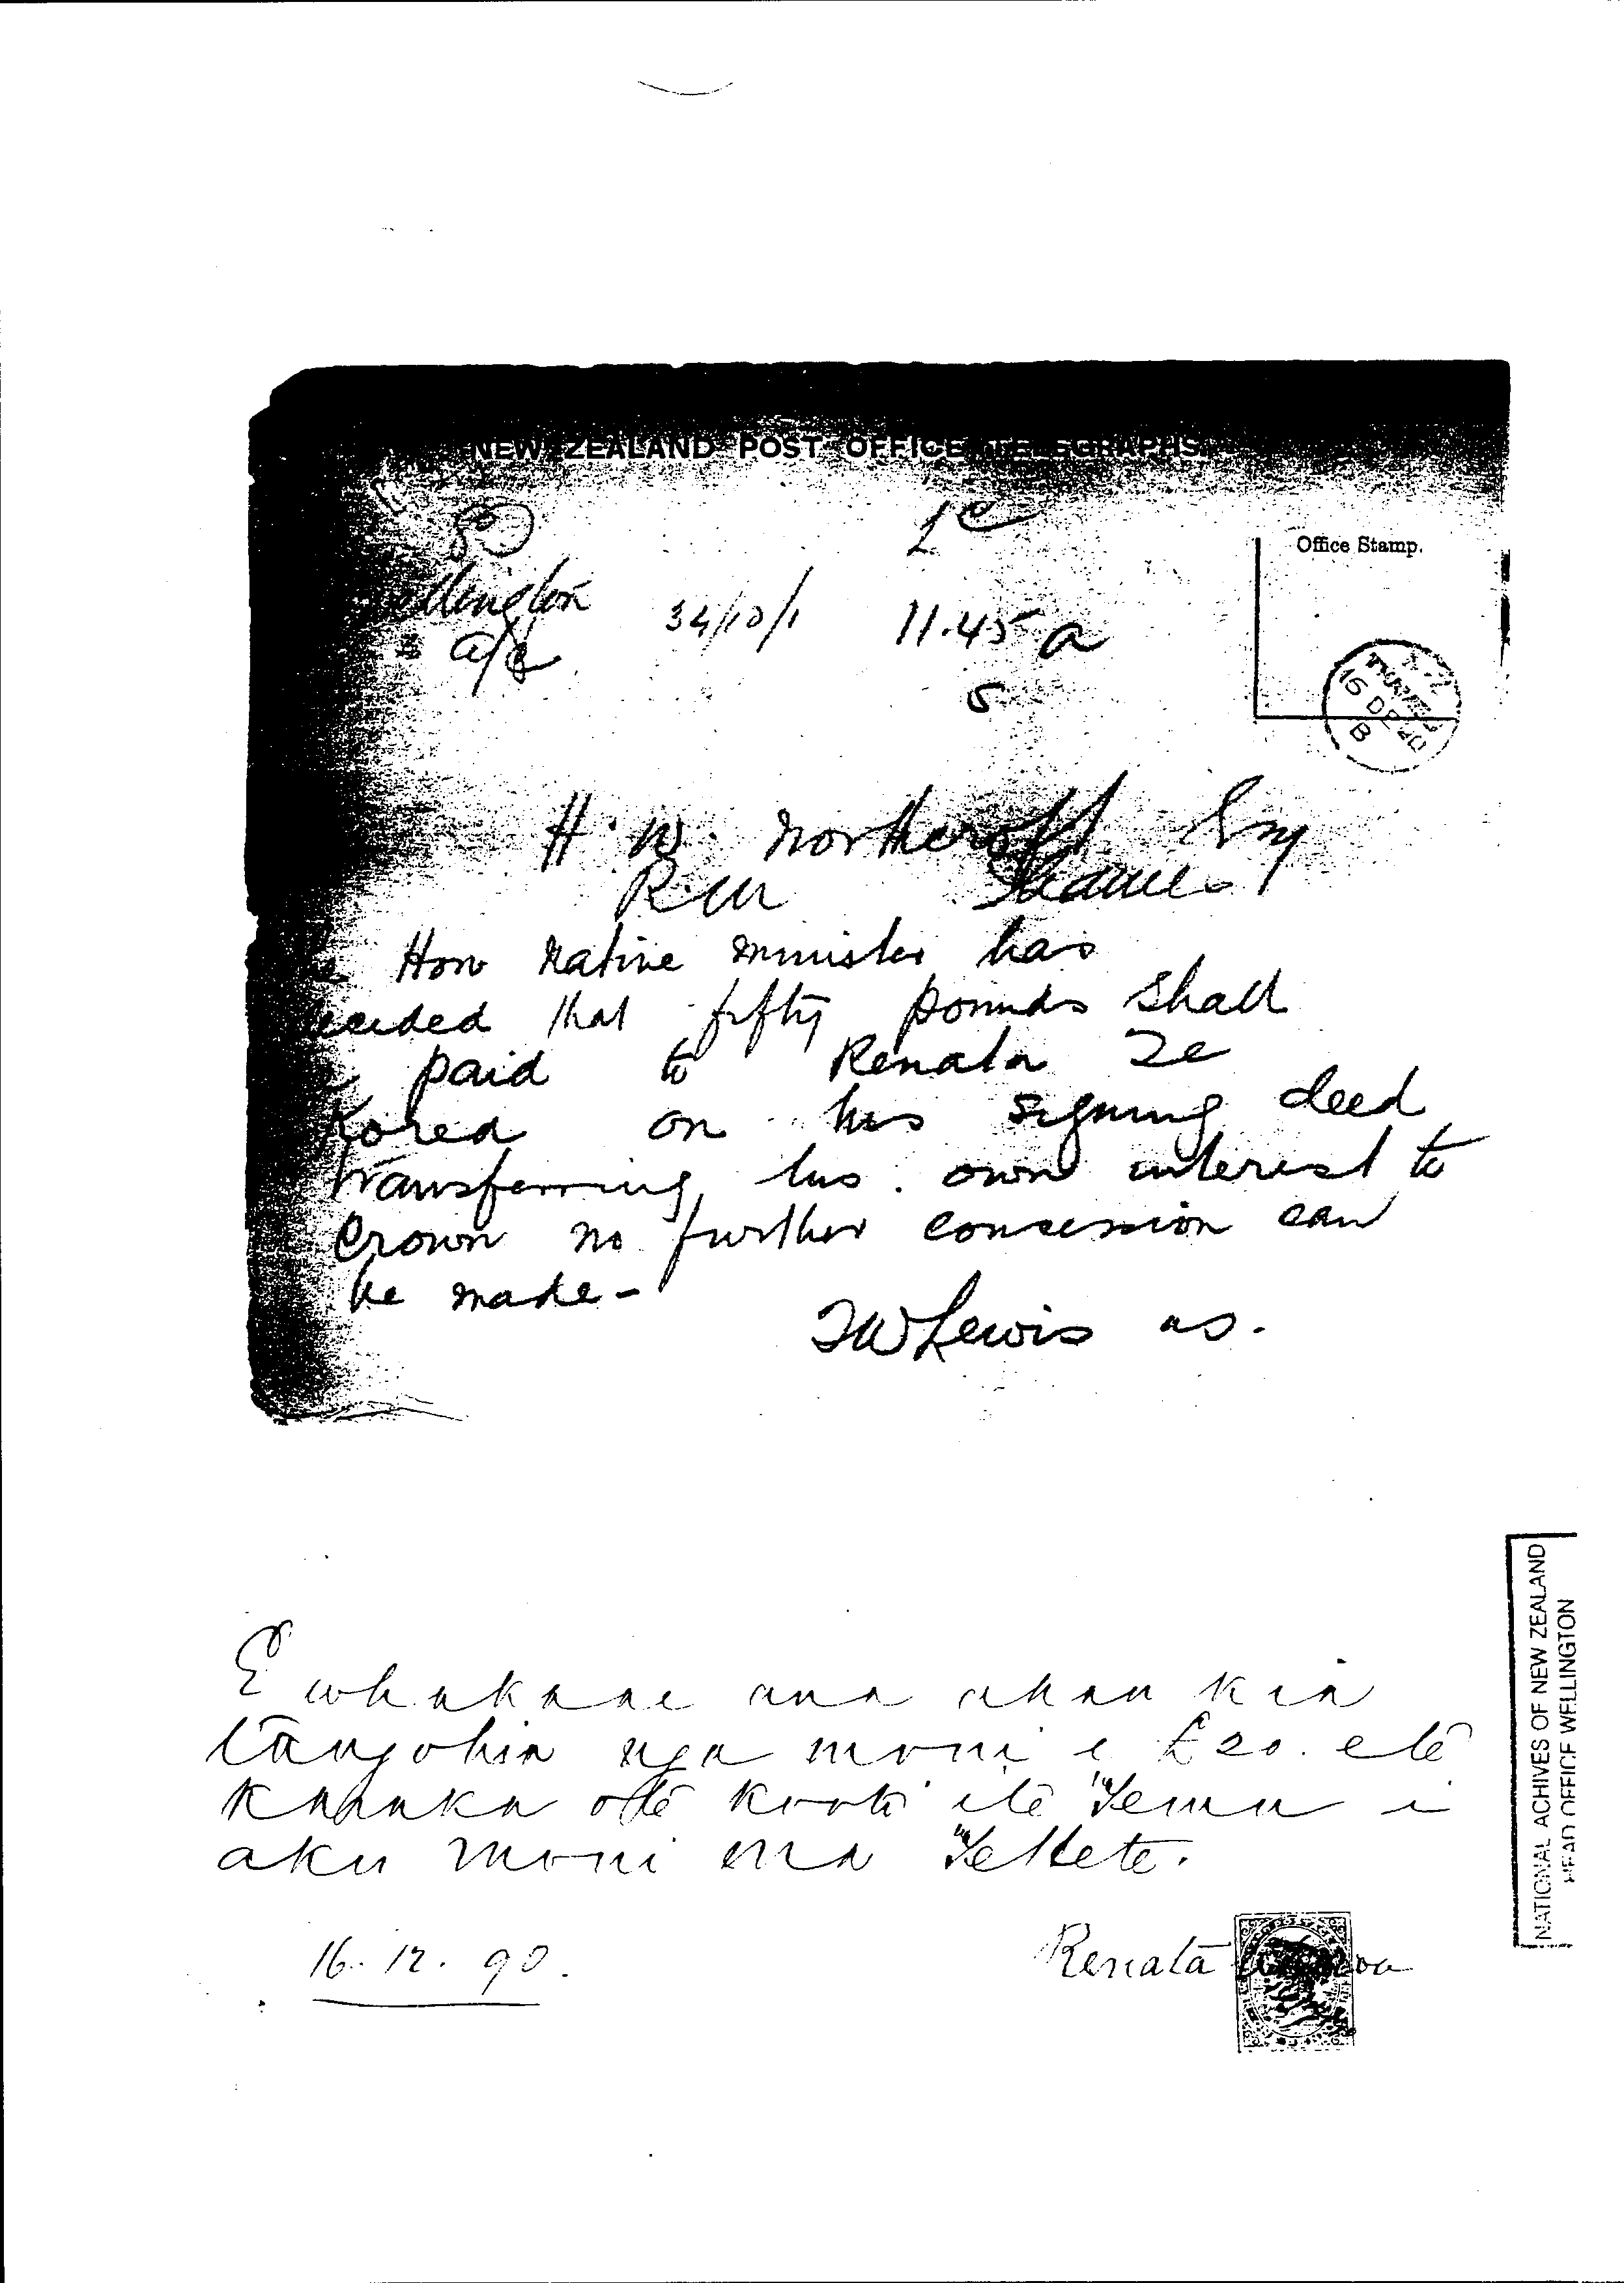 NEW ZEALAND POST OFFICE TELEGRAPHS
Office Stamp.
34/10/1 11.45 a
5
16 DE 90
B
H. W. Northcroft Esq
R.M
Hon Native Minister has
that fifty pounds shall
paid to Renata Te
Korea on his signing deed
transferring his own interest to
Crown no further concession can
be made -
TW Lewis us.
E whakaae ana ahau kia
tangohia nga moni e £20. e te
o te kooti i te Temu i
aku moni ma Te Kete.
16. 12. 90.
Renata
NATIONAL ACHIVES OF NEW ZEALAND
HEAD OFFICE WELLINGTON